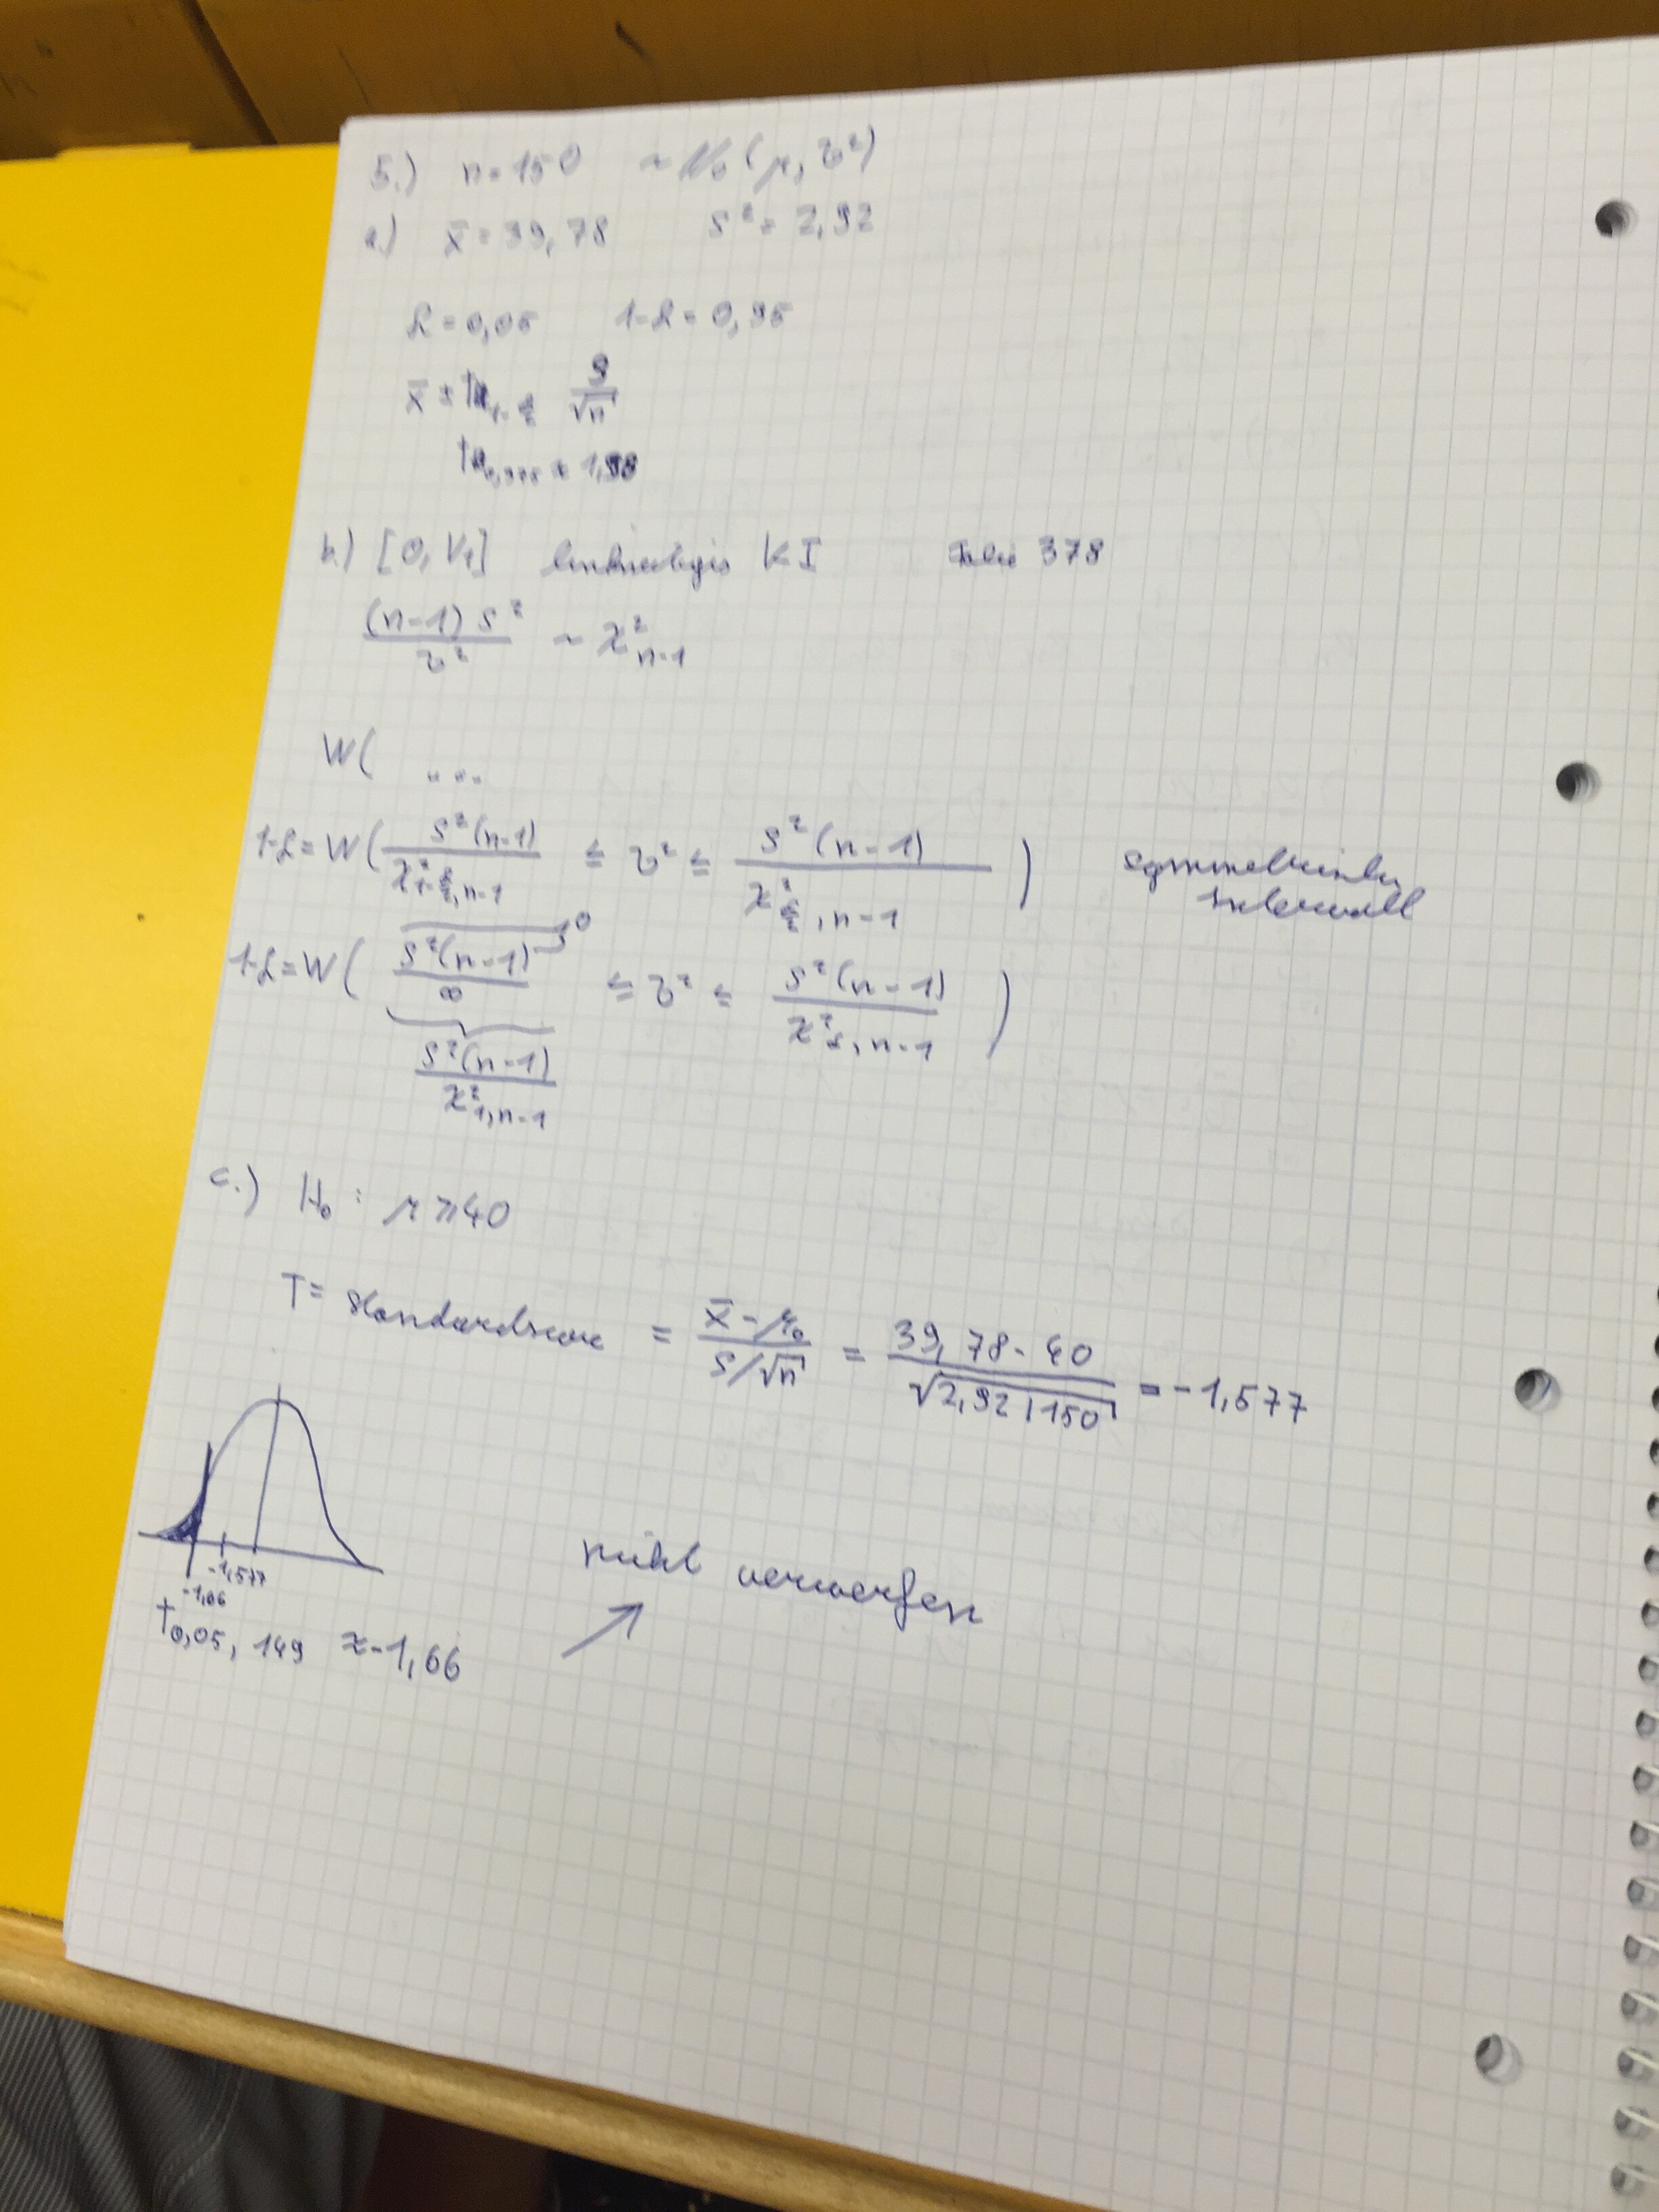 5.) n = 150 ~ N (μ, σ²)
a.) x̄ = 39,78 s² = 2,92
α = 0,05 1-α = 0,95
x̄ ± t 1-α/2 s/√n
t 0,975 ≈ 1,98
b.) [0, V₁] KI Folie 378
(n-1) s² / σ² ~ χ² n-1
W( ...
1-α = W( s²(n-1) / χ² 1-α/2, n-1 ≤ σ² ≤ s²(n-1) / χ² α/2, n-1 ) symmetrisches
Intervall
1-α = W( s²(n-1) / ∞ → 0 ≤ σ² ≤ s²(n-1) / χ² α, n-1 )
s²(n-1) / χ² 1, n-1
c.) H₀ : μ ≥ 40
T = Standardscore = x̄ - μ₀ / s/√n = 39,78 - 40 / √2,92/150 = -1,577
-1,577
-1,66
t 0,05, 149 ≈ -1,66
nicht verwerfen